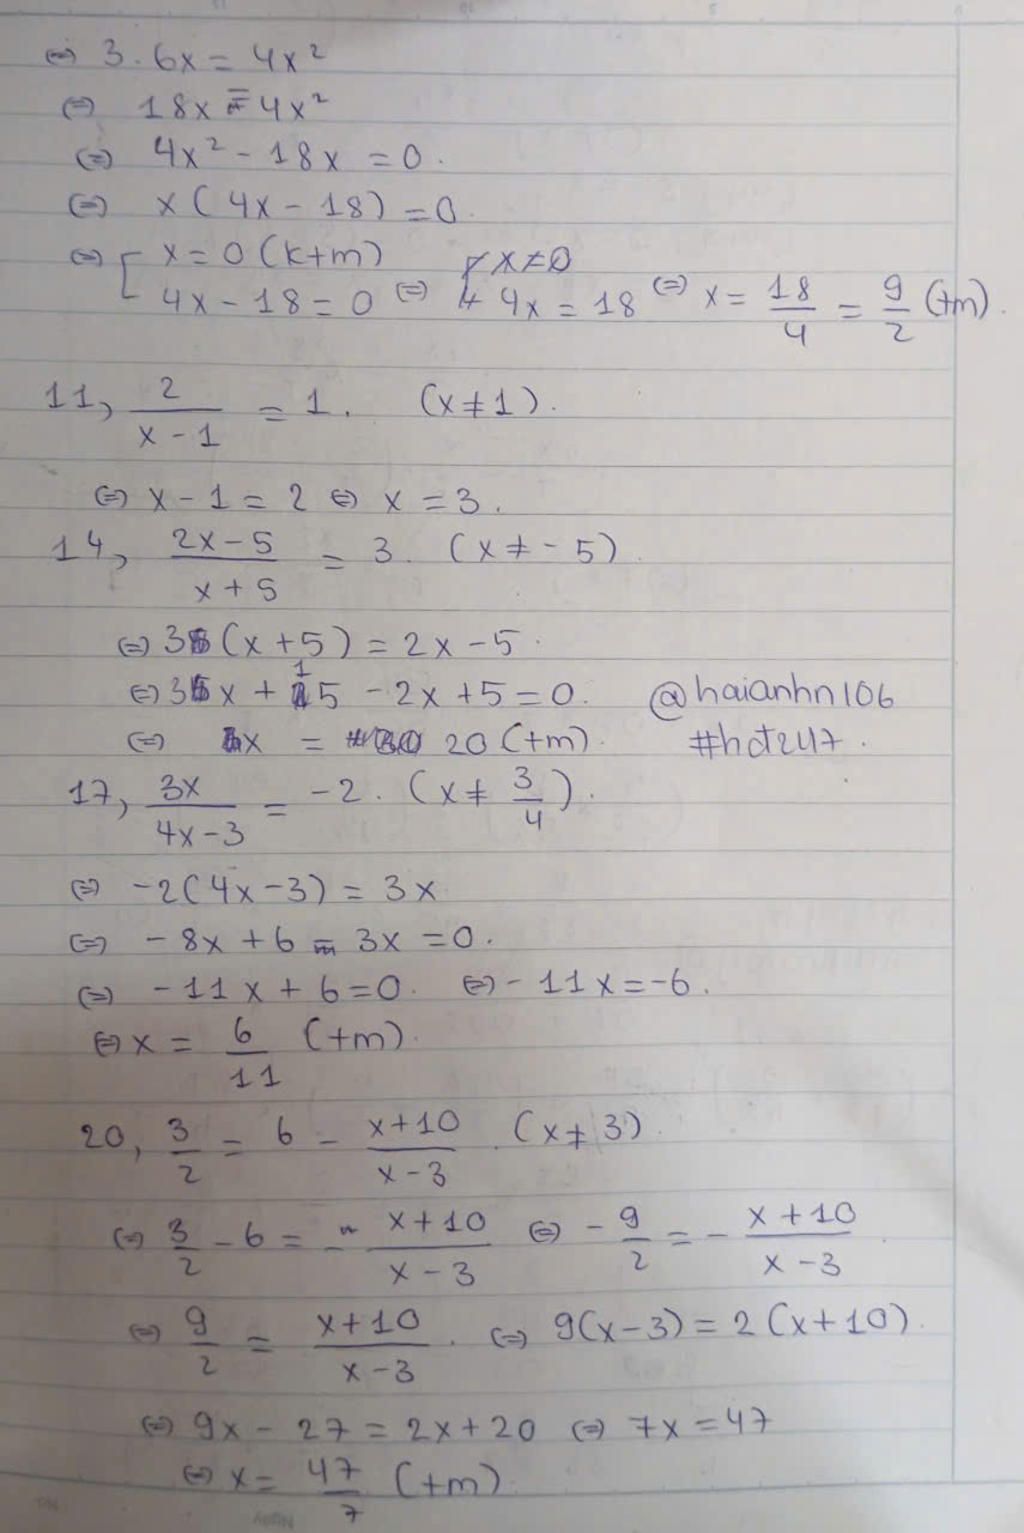 ⇔ 3.6x = 4x²
⇔ 18x = 4x²
⇔ 4x² - 18x = 0.
⇔ x(4x - 18) = 0.
⇔ [ x = 0 (k+m) x ≠ 0
4x - 18 = 0 ⇔ 4x = 18 ⇔ x = 18/4 = 9/2 (+m).
11, 2/(x - 1) = 1. (x ≠ 1).
⇔ x - 1 = 2 ⇔ x = 3.
14, (2x - 5)/(x + 5) = 3. (x ≠ - 5).
⇔ 3(x + 5) = 2x - 5.
⇔ 3x + 15 - 2x + 5 = 0. @haianhn106
⇔ x = 20 (+m). #hdt247.
17, 3x/(4x - 3) = -2. (x ≠ 3/4).
⇔ -2(4x - 3) = 3x
⇔ - 8x + 6 - 3x = 0.
⇔ - 11x + 6 = 0. ⇔ - 11x = -6.
⇔ x = 6/11 (+m).
20, 3/2 = 6 - (x + 10)/(x - 3). (x ≠ 3).
⇔ 3/2 - 6 = - (x + 10)/(x - 3) ⇔ - 9/2 = - (x + 10)/(x - 3)
⇔ 9/2 = (x + 10)/(x - 3). ⇔ 9(x - 3) = 2(x + 10).
⇔ 9x - 27 = 2x + 20 ⇔ 7x = 47
⇔ x = 47/7 (+m)